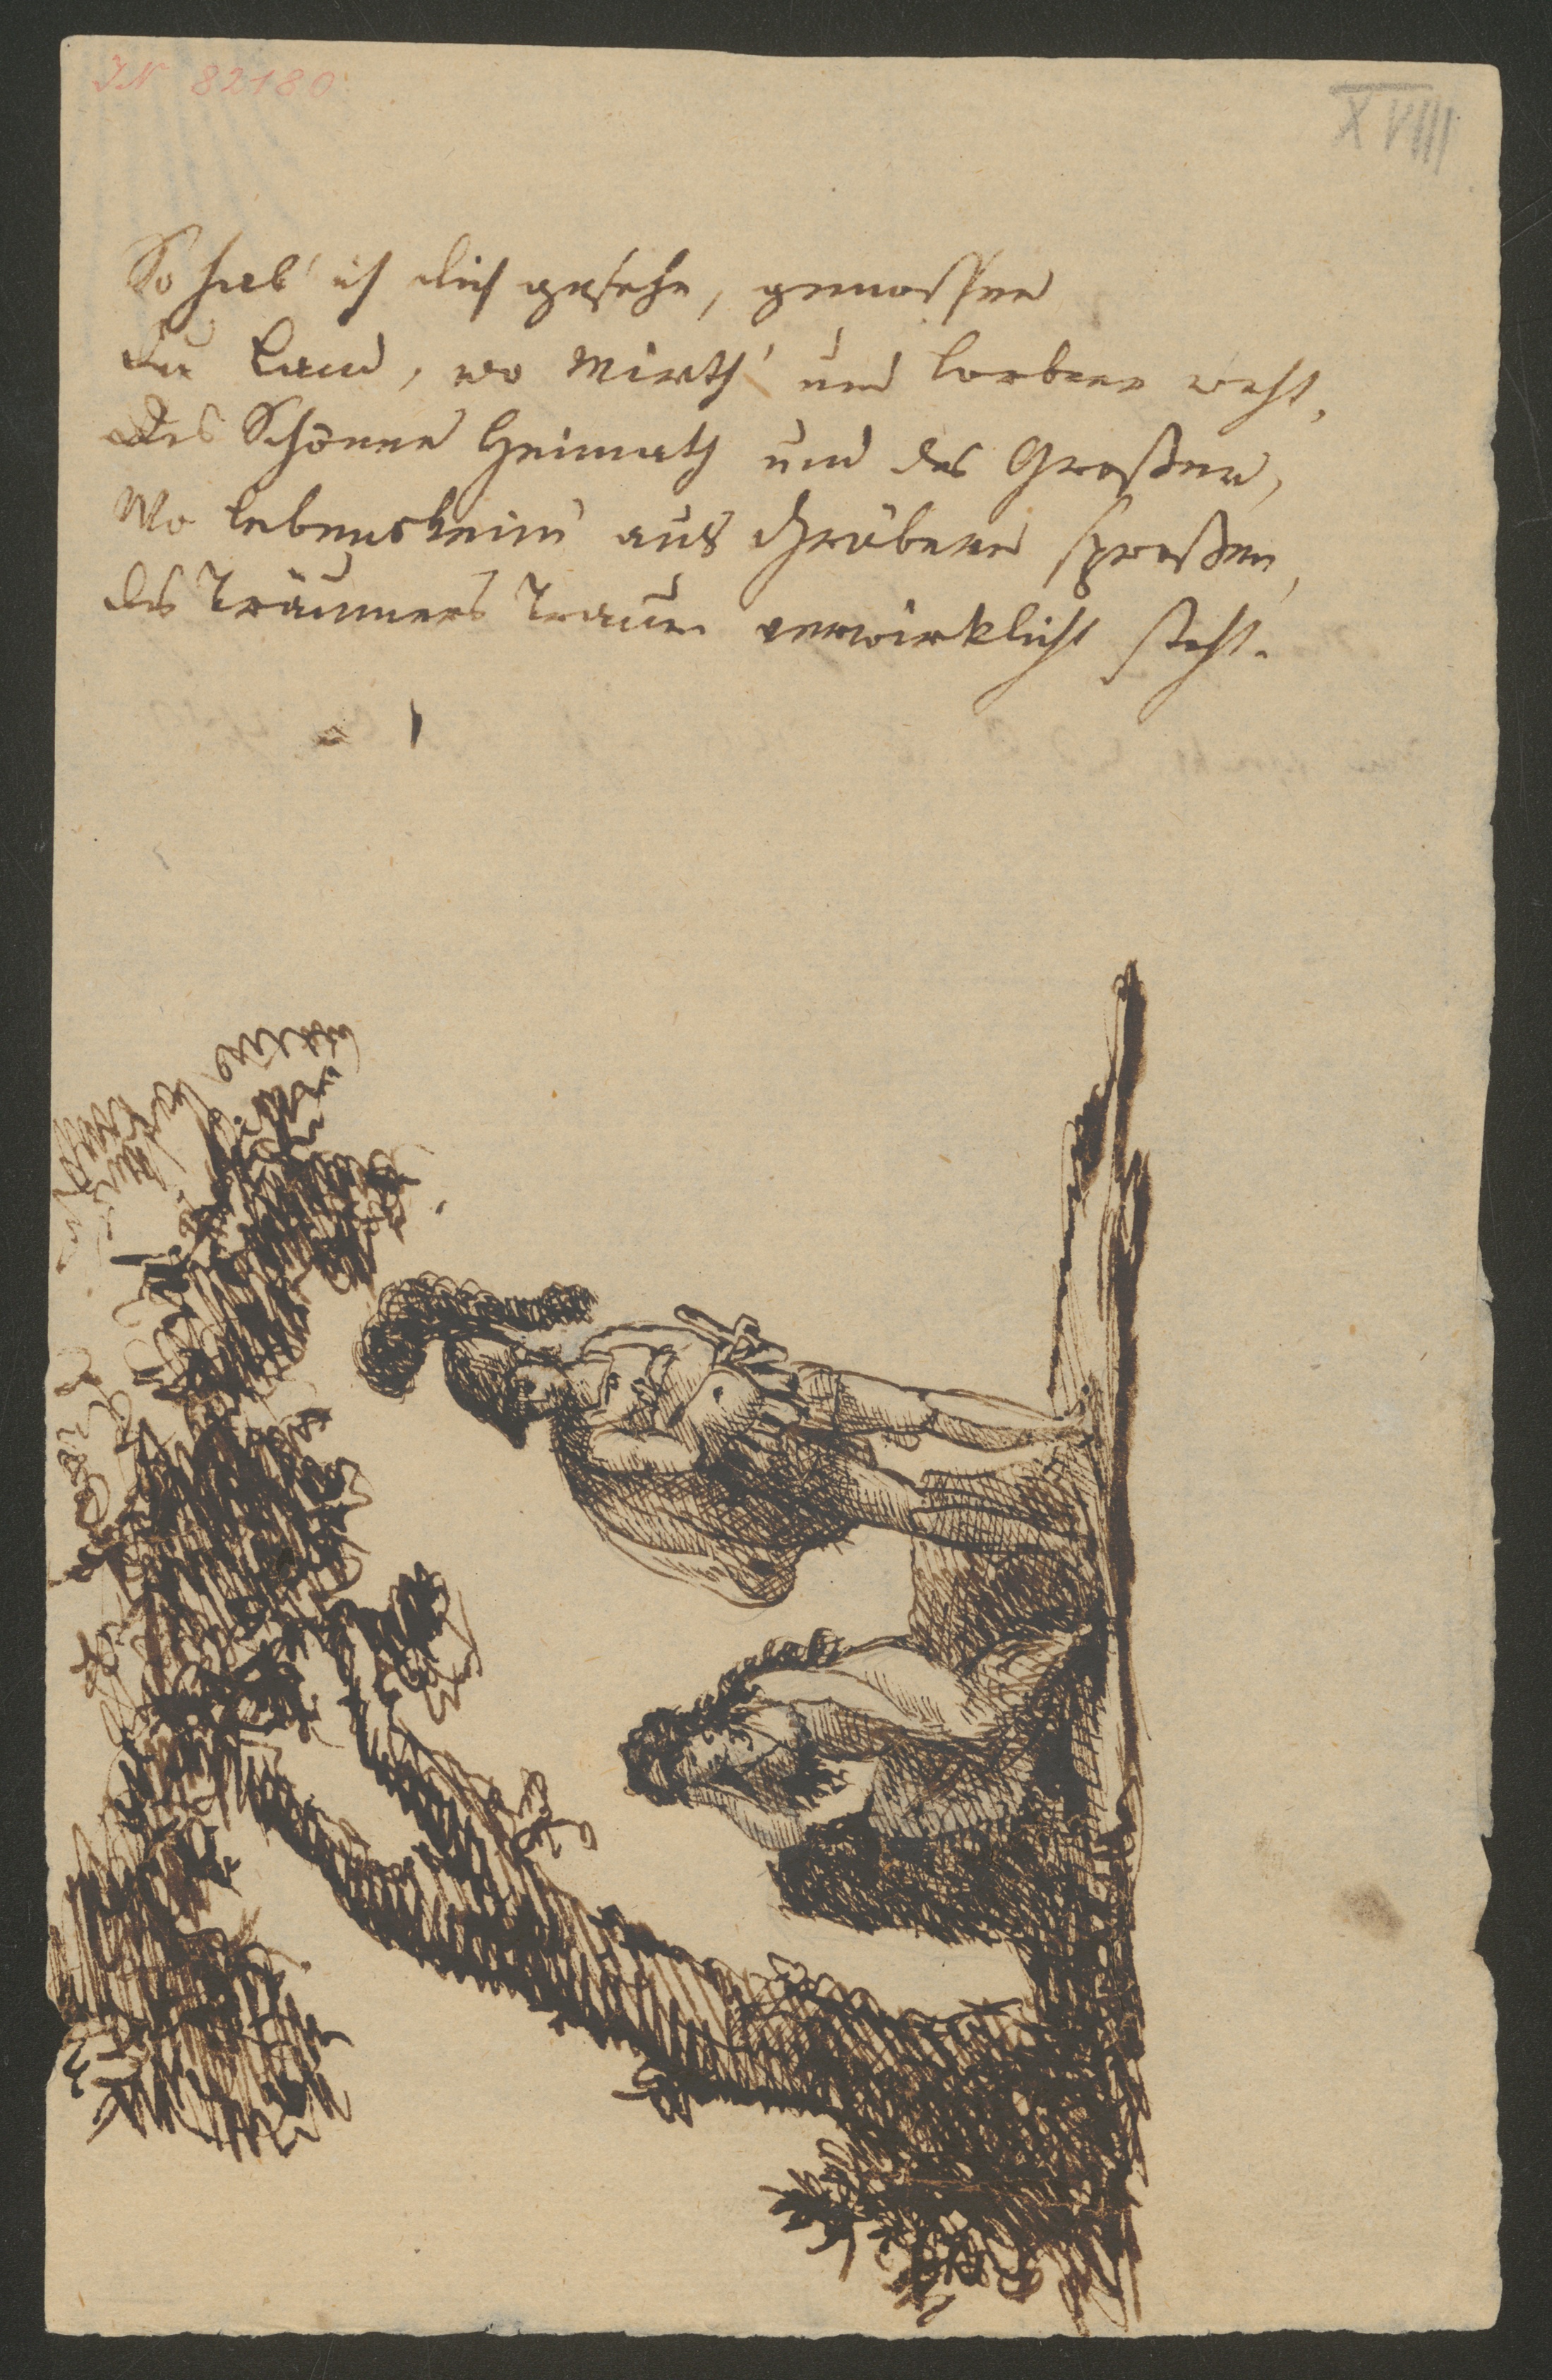 IN 82180
XVIII
So hab' ich dich gesehn, genossen
Du Land, wo Mirth' und Lorbeer weht,
Des Schönen Heimath und des Großen,
Wo Lebenskeim' aus Gräbern sproßen,
Des Träumers Traum verwirklicht steht.